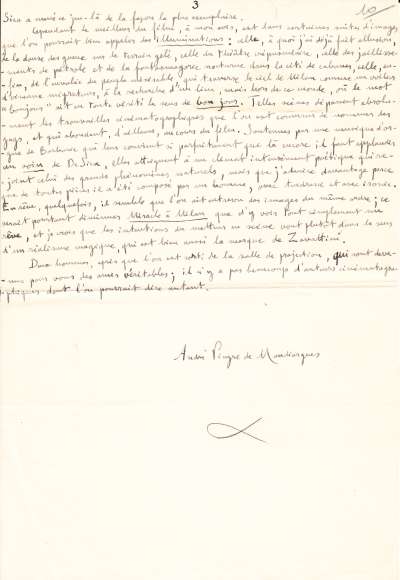 3
10
Sica a menée jusque-là de la façon la plus exemplaire.
Cependant le meilleur du film, à mon avis, est dans certaines suites d'images
que l'on pourrait bien appeler des illuminations : celle, à quoi j'ai déjà fait allusion,
de la danse des gueux sur le terrain gelé, celle du théâtre crépusculaire, celle des jaillisse-
-ments de pétrole et de la fantasmagorie nocturne dans la cité de cabanes, celle, en-
-fin, de l'envolée du peuple misérable qui traverse le ciel de Milan comme un voilier
d'oiseaux migrateurs, à la recherche d'un lieu, mais hors de ce monde, où le mot
"bonjour" ait en toute vérité le sens de bon jour. Telles scènes dépassent absolu-
-ment les trouvailles cinématographiques que l'on est convenu de nommer des
gags, et qui abondent, d'ailleurs, au cours du film. Soutenues par une musique d'or-
-gue de Barbarie qui leur convient si parfaitement que là encore il faut applaudir
au choix de De Sica, elles atteignent à un climat intensément poétique qui re-
-joint celui des grands phénomènes naturels, mais que j'admire davantage parce
que de toutes pièces il a été composé par un homme, avec tendresse et avec ironie.
En rêve, quelquefois, il semble que l'on ait entrevu des images du même ordre ; ce
serait pourtant diminuer Miracle à Milan que d'y voir tout simplement un
rêve, et je crois que les intentions du metteur en scène vont plutôt dans le sens
d'un réalisme magique, qui est bien aussi la marque de Zavattini.
Deux hommes, après que l'on est sorti de la salle de projection, qui sont deve-
-nus pour vous des amis véritables ; il n'y a pas beaucoup d'auteurs cinématogra-
-phiques dont l'on pourrait dire autant.
André Pieyre de Mandiargues